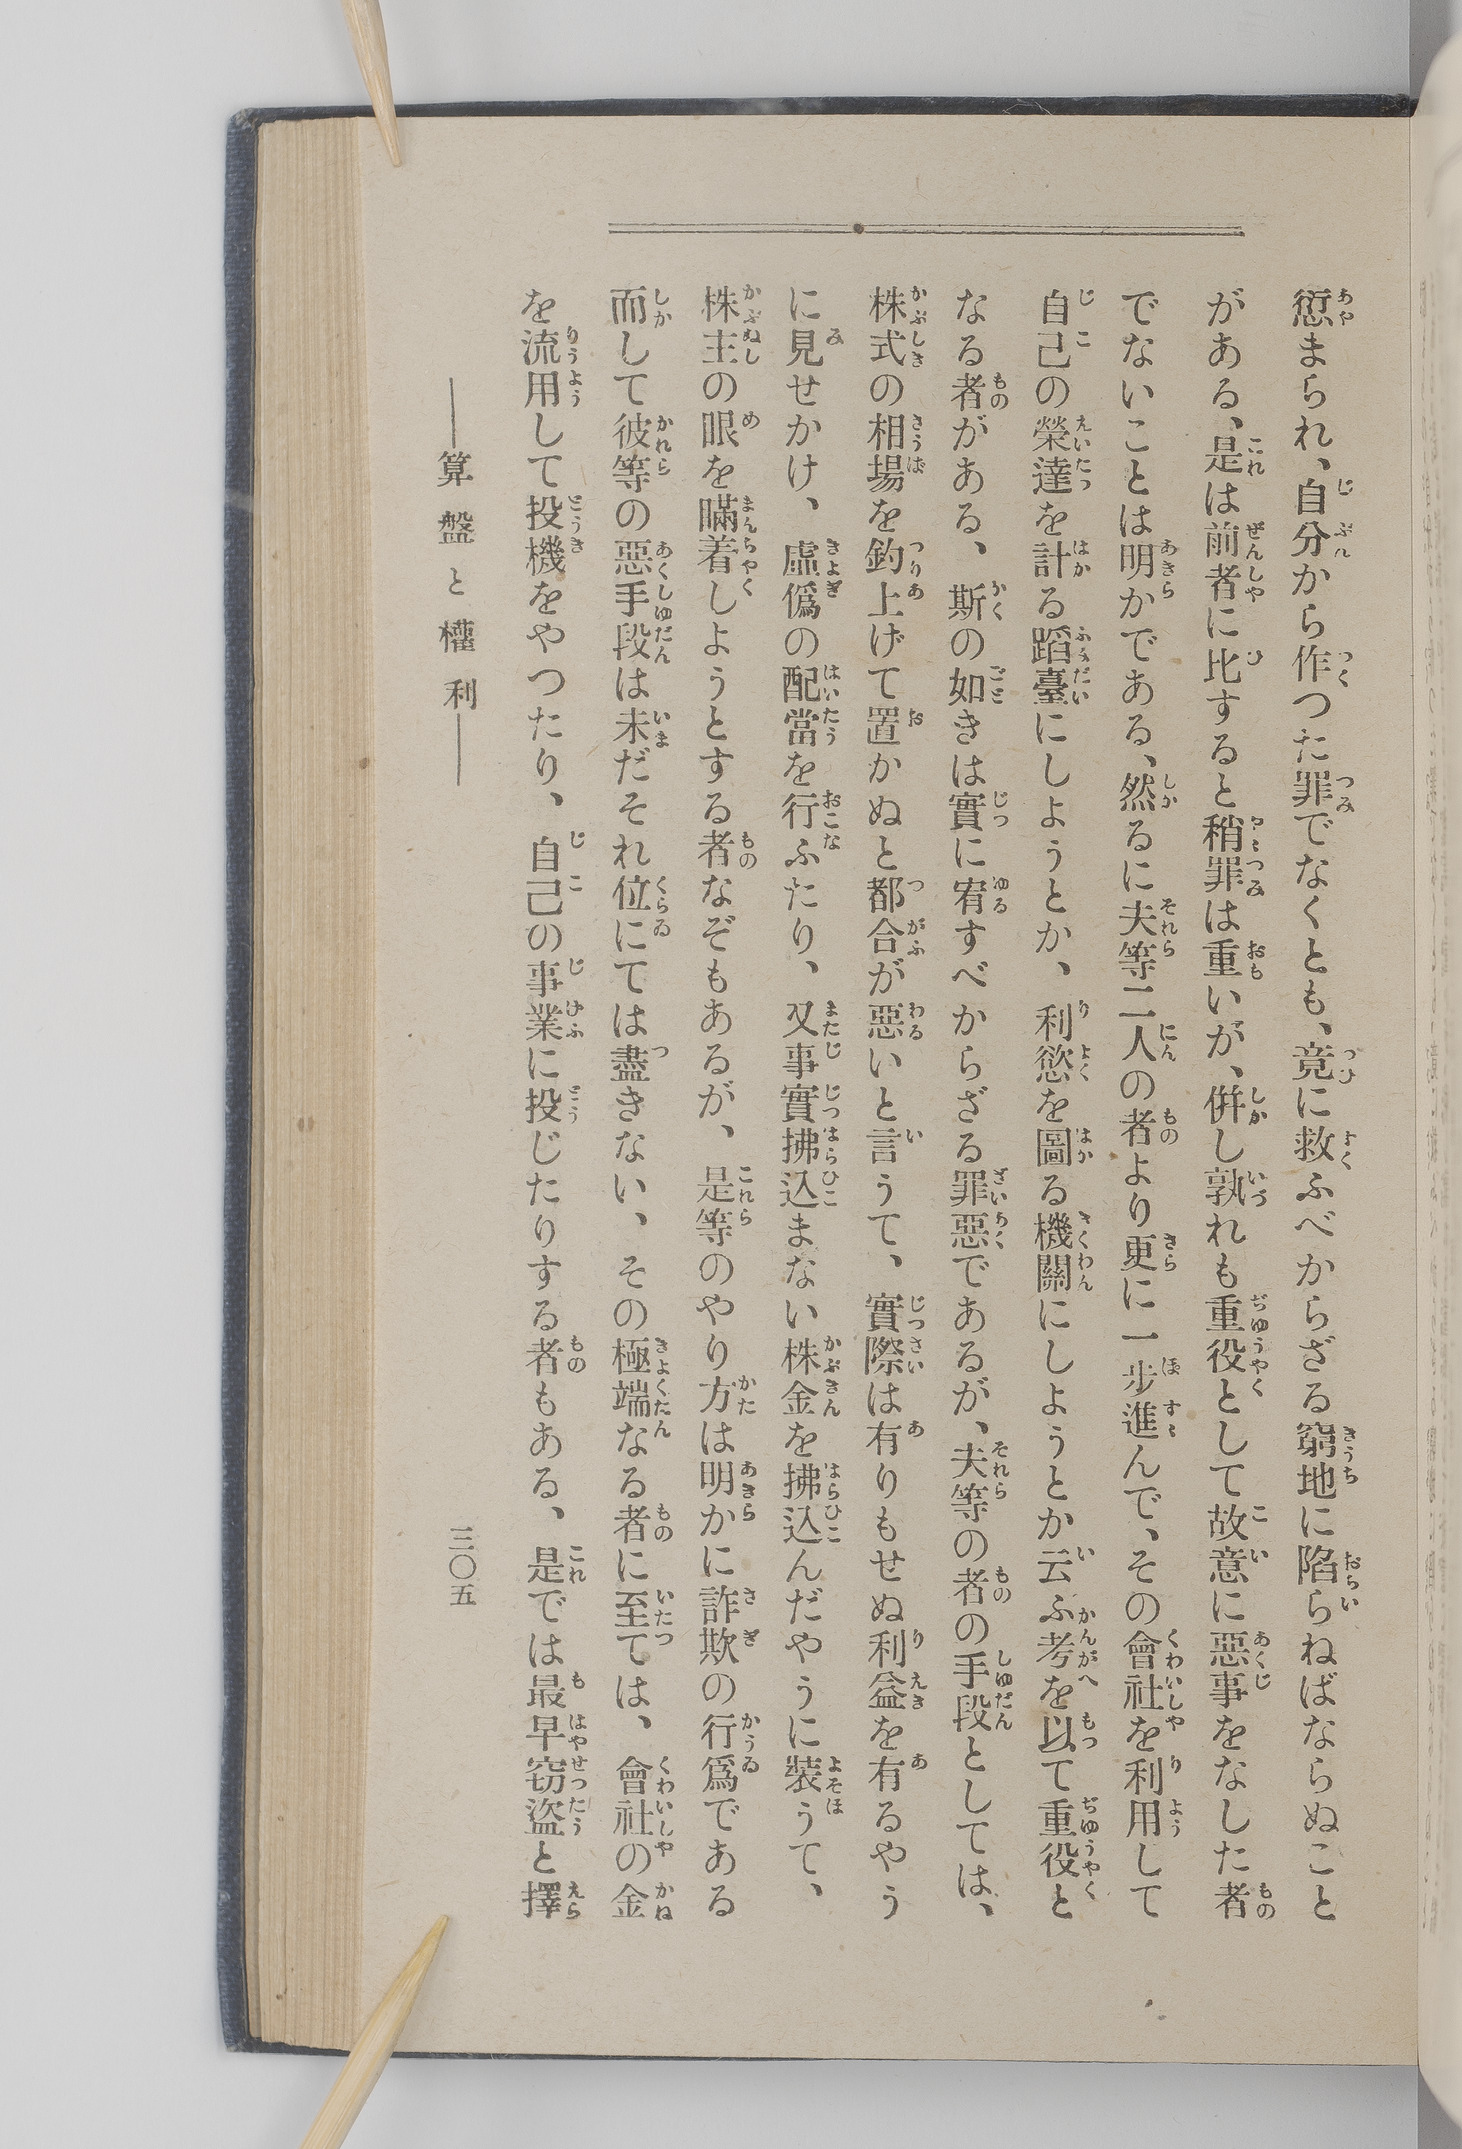 愆まられ、自分から作つた罪でなくとも、竟に救ふべからざる窮地に陷らねばならぬこと
がある、是は前者に比すると稍罪は重いが、併し孰れも重役として故意に惡事をなした者
でないことは明かである、然るに夫等二人の者より更に一步進んで、その會社を利用して
自己の榮達を計る蹈臺にしようとか、利慾を圖る機關にしようとか云ふ考を以て重役と
なる者がある、斯の如きは實に宥すべからざる罪惡であるが、夫等の者の手段としては、
株式の相場を釣上げて置かぬと都合が惡いと言うて、實際は有りもせぬ利益を有るやう
に見せかけ、虛僞の配當を行ふたり、又事實拂込まない株金を拂込んだやうに裝うて、
株主の眼を瞞着しようとする者なぞもあるが、是等のやり方は明かに詐欺の行爲である
而して彼等の惡手段は未だそれ位にては盡きない、その極端なる者に至ては、會社の金
を流用して投機をやつたり、自己の事業に投じたりする者もある、是では最早窃盜と擇
―算盤と權利―
三〇五